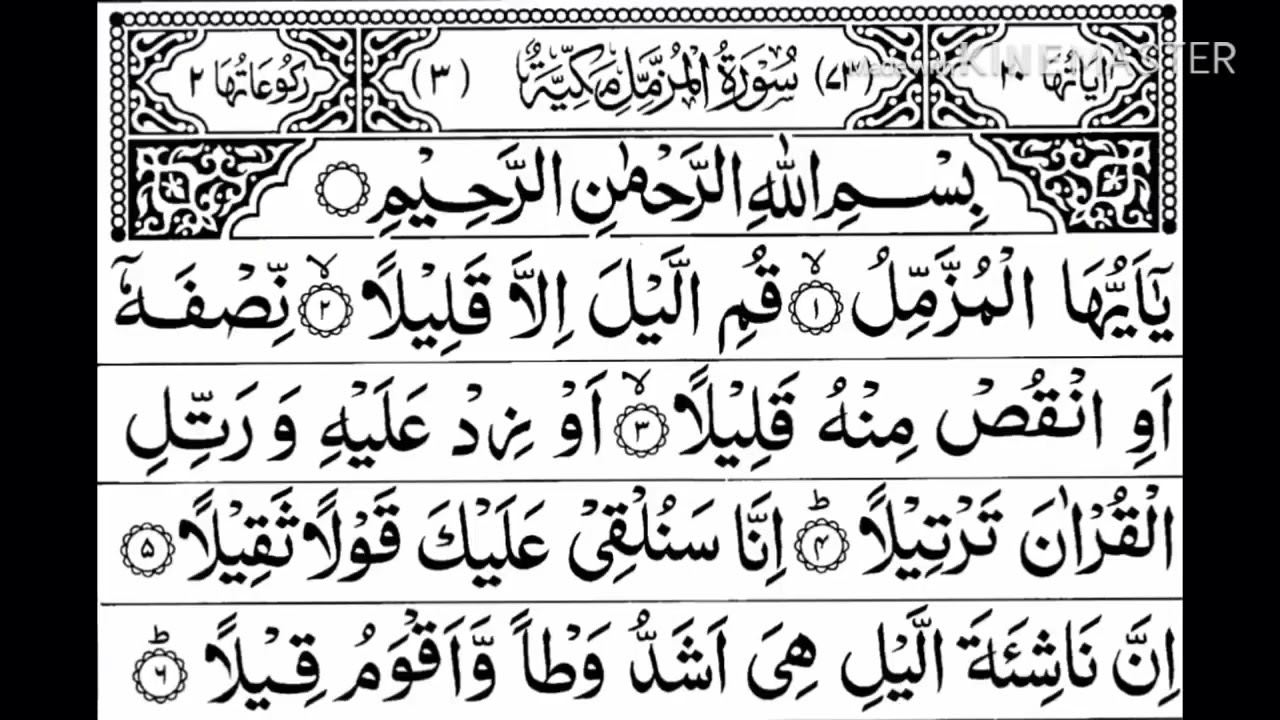 اٰيَاتُهَا ٢٠ (٧٣) سُوْرَةُ الْمُزَّمِّلِ مَكِّيَّةٌ (٣) رُكُوْعَاتُهَا ٢
Made with KINEMASTER
بِسْمِ اللّٰهِ الرَّحْمٰنِ الرَّحِيْمِ
يٰۤاَيُّهَا الْمُزَّمِّلُ ۙ﴿۱﴾ قُمِ الَّيْلَ اِلَّا قَلِيْلًا ۙ﴿۲﴾ نِّصْفَهٗۤ
اَوِ انْقُصْ مِنْهُ قَلِيْلًا ۙ﴿۳﴾ اَوْ زِدْ عَلَيْهِ وَ رَتِّلِ
الْقُرْاٰنَ تَرْتِيْلًا ؕ﴿۴﴾ اِنَّا سَنُلْقِيْ عَلَيْكَ قَوْلًا ثَقِيْلًا ﴿۵﴾
اِنَّ نَاشِئَةَ الَّيْلِ هِيَ اَشَدُّ وَطْاً وَّاَقْوَمُ قِيْلًا ؕ﴿۶﴾